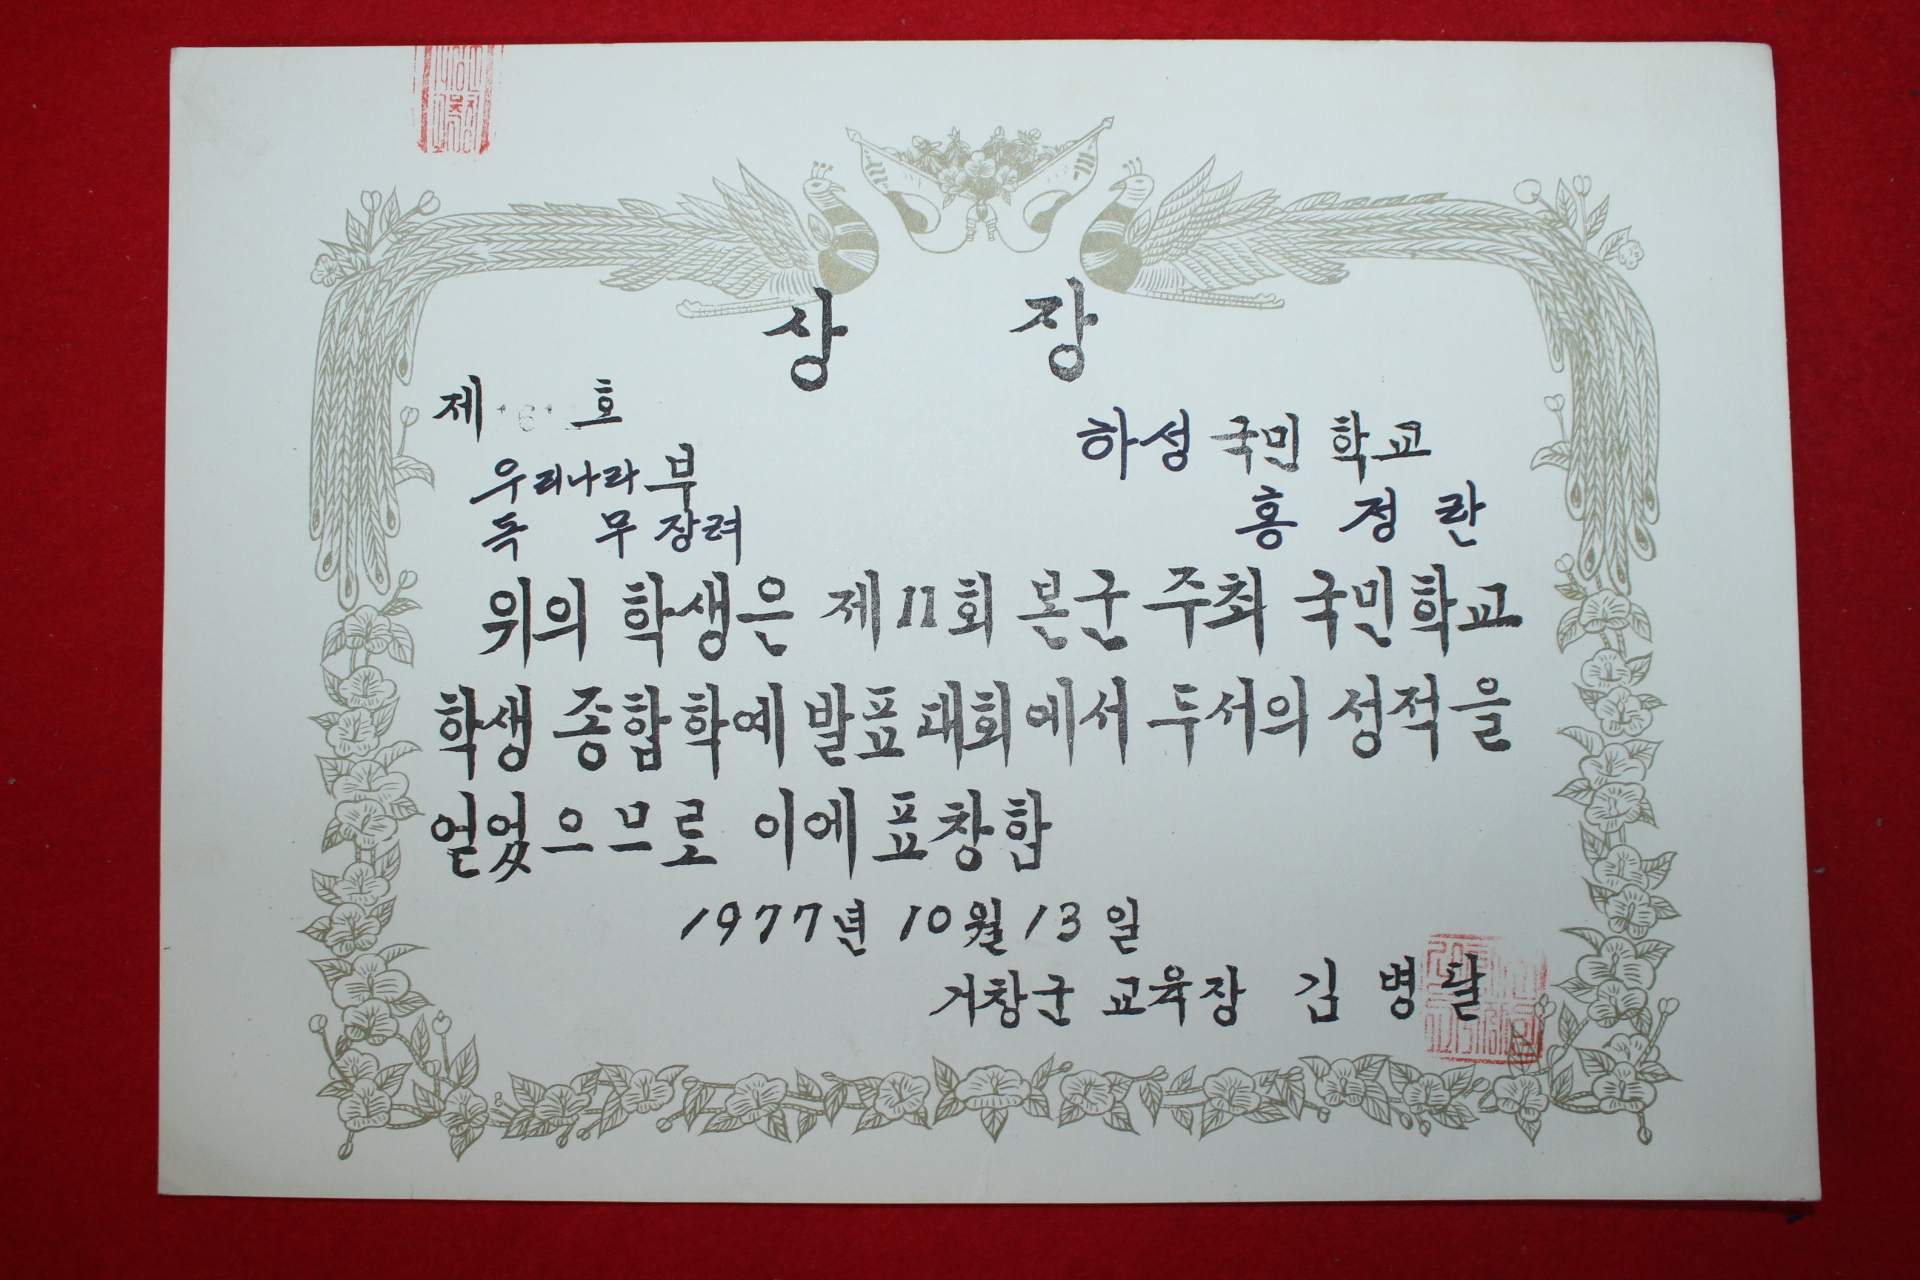 상 장
제 161 호
하성 국민 학교
우리나라 부
홍 정 란
독 무 장려
위의 학생은 제11회 본군 주최 국민학교
학생 종합학예 발표대회에서 두서의 성적을
얻었으므로 이에 표창함
1977년 10월 13일
거창군 교육장 김 병 달